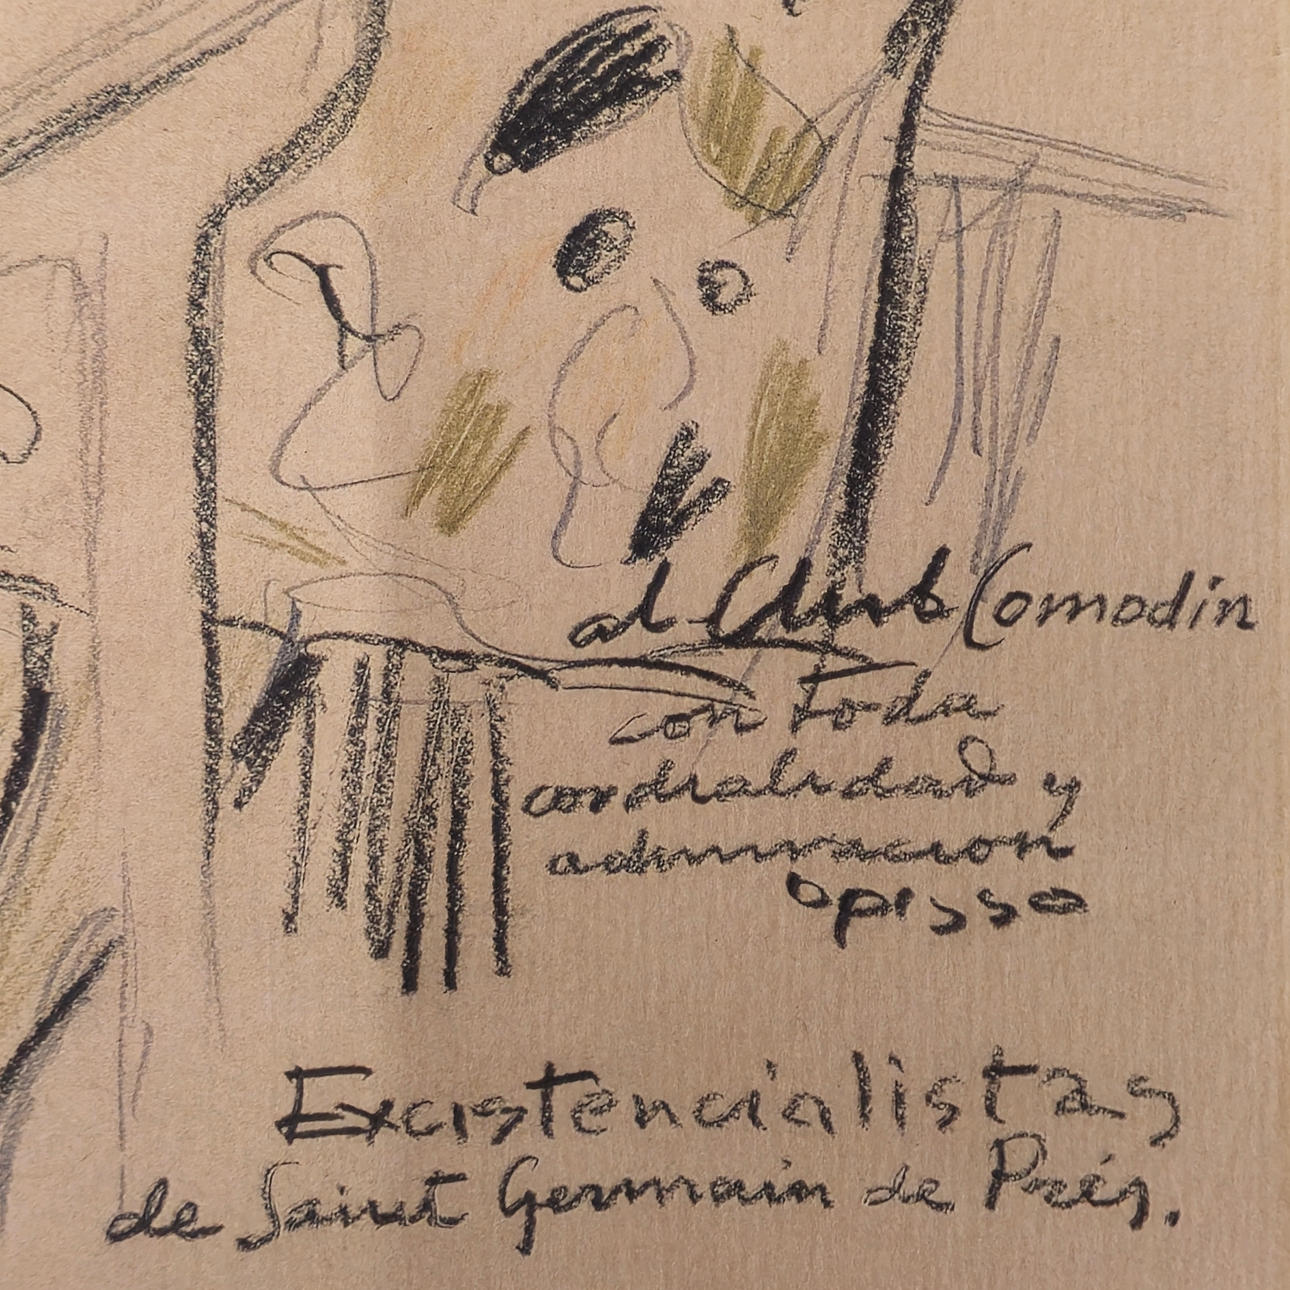 al Club Comodin
con toda
cordialidad y
admiracion
opisso
Excistencialistas
de Saint Germain de Prés.